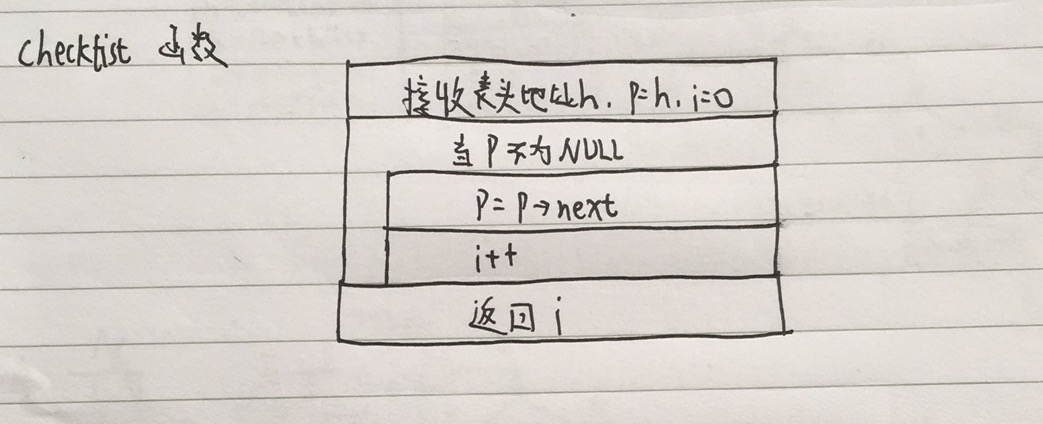 checklist 函数
接收表头地址h, p=h, i=0
当 p不为NULL
p= p→next
i++
返回 i